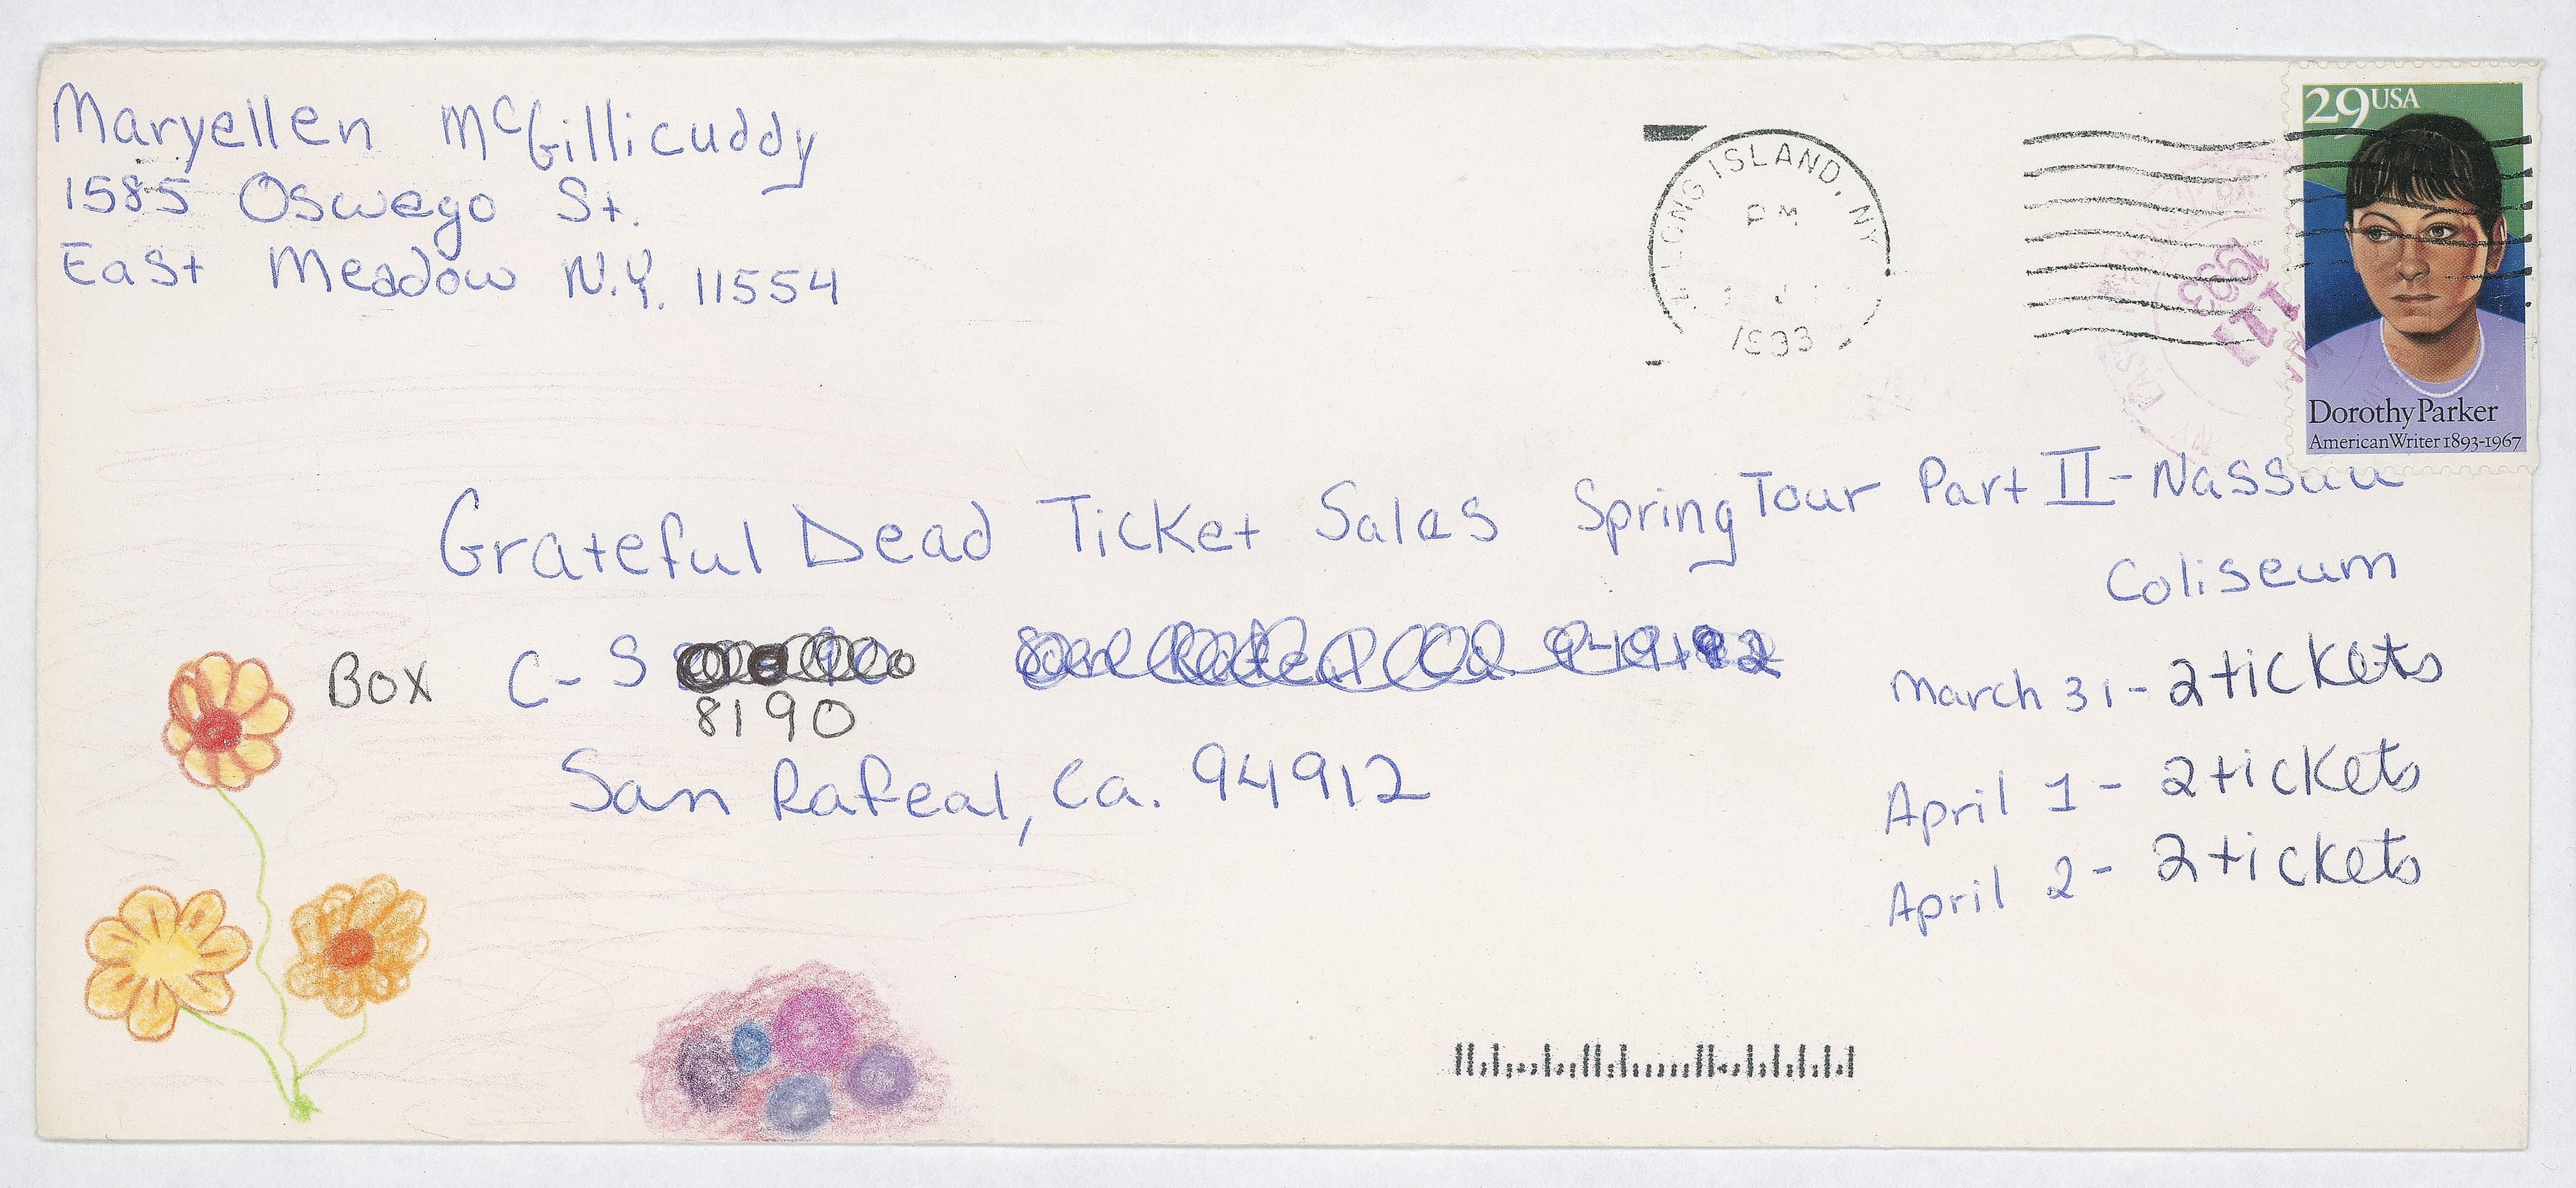 Maryellen McGillicuddy
1585 Oswego St.
East Meadow N.Y. 11554
LONG ISLAND, NY
PM
1993
1993
29 USA
Dorothy Parker
American Writer 1893-1967
Grateful Dead Ticket Sales Spring Tour Part II - Nassau
Coliseum
Box C-S
8190
San Rafeal, Ca. 94912
March 31 - 2 tickets
April 1 - 2 tickets
April 2 - 2 tickets